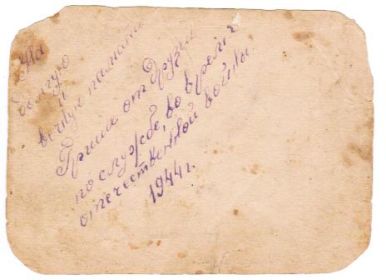 На
долгую
и
вечную память
Грише от Друга
по службе, во время
отечественной войны
1944г.